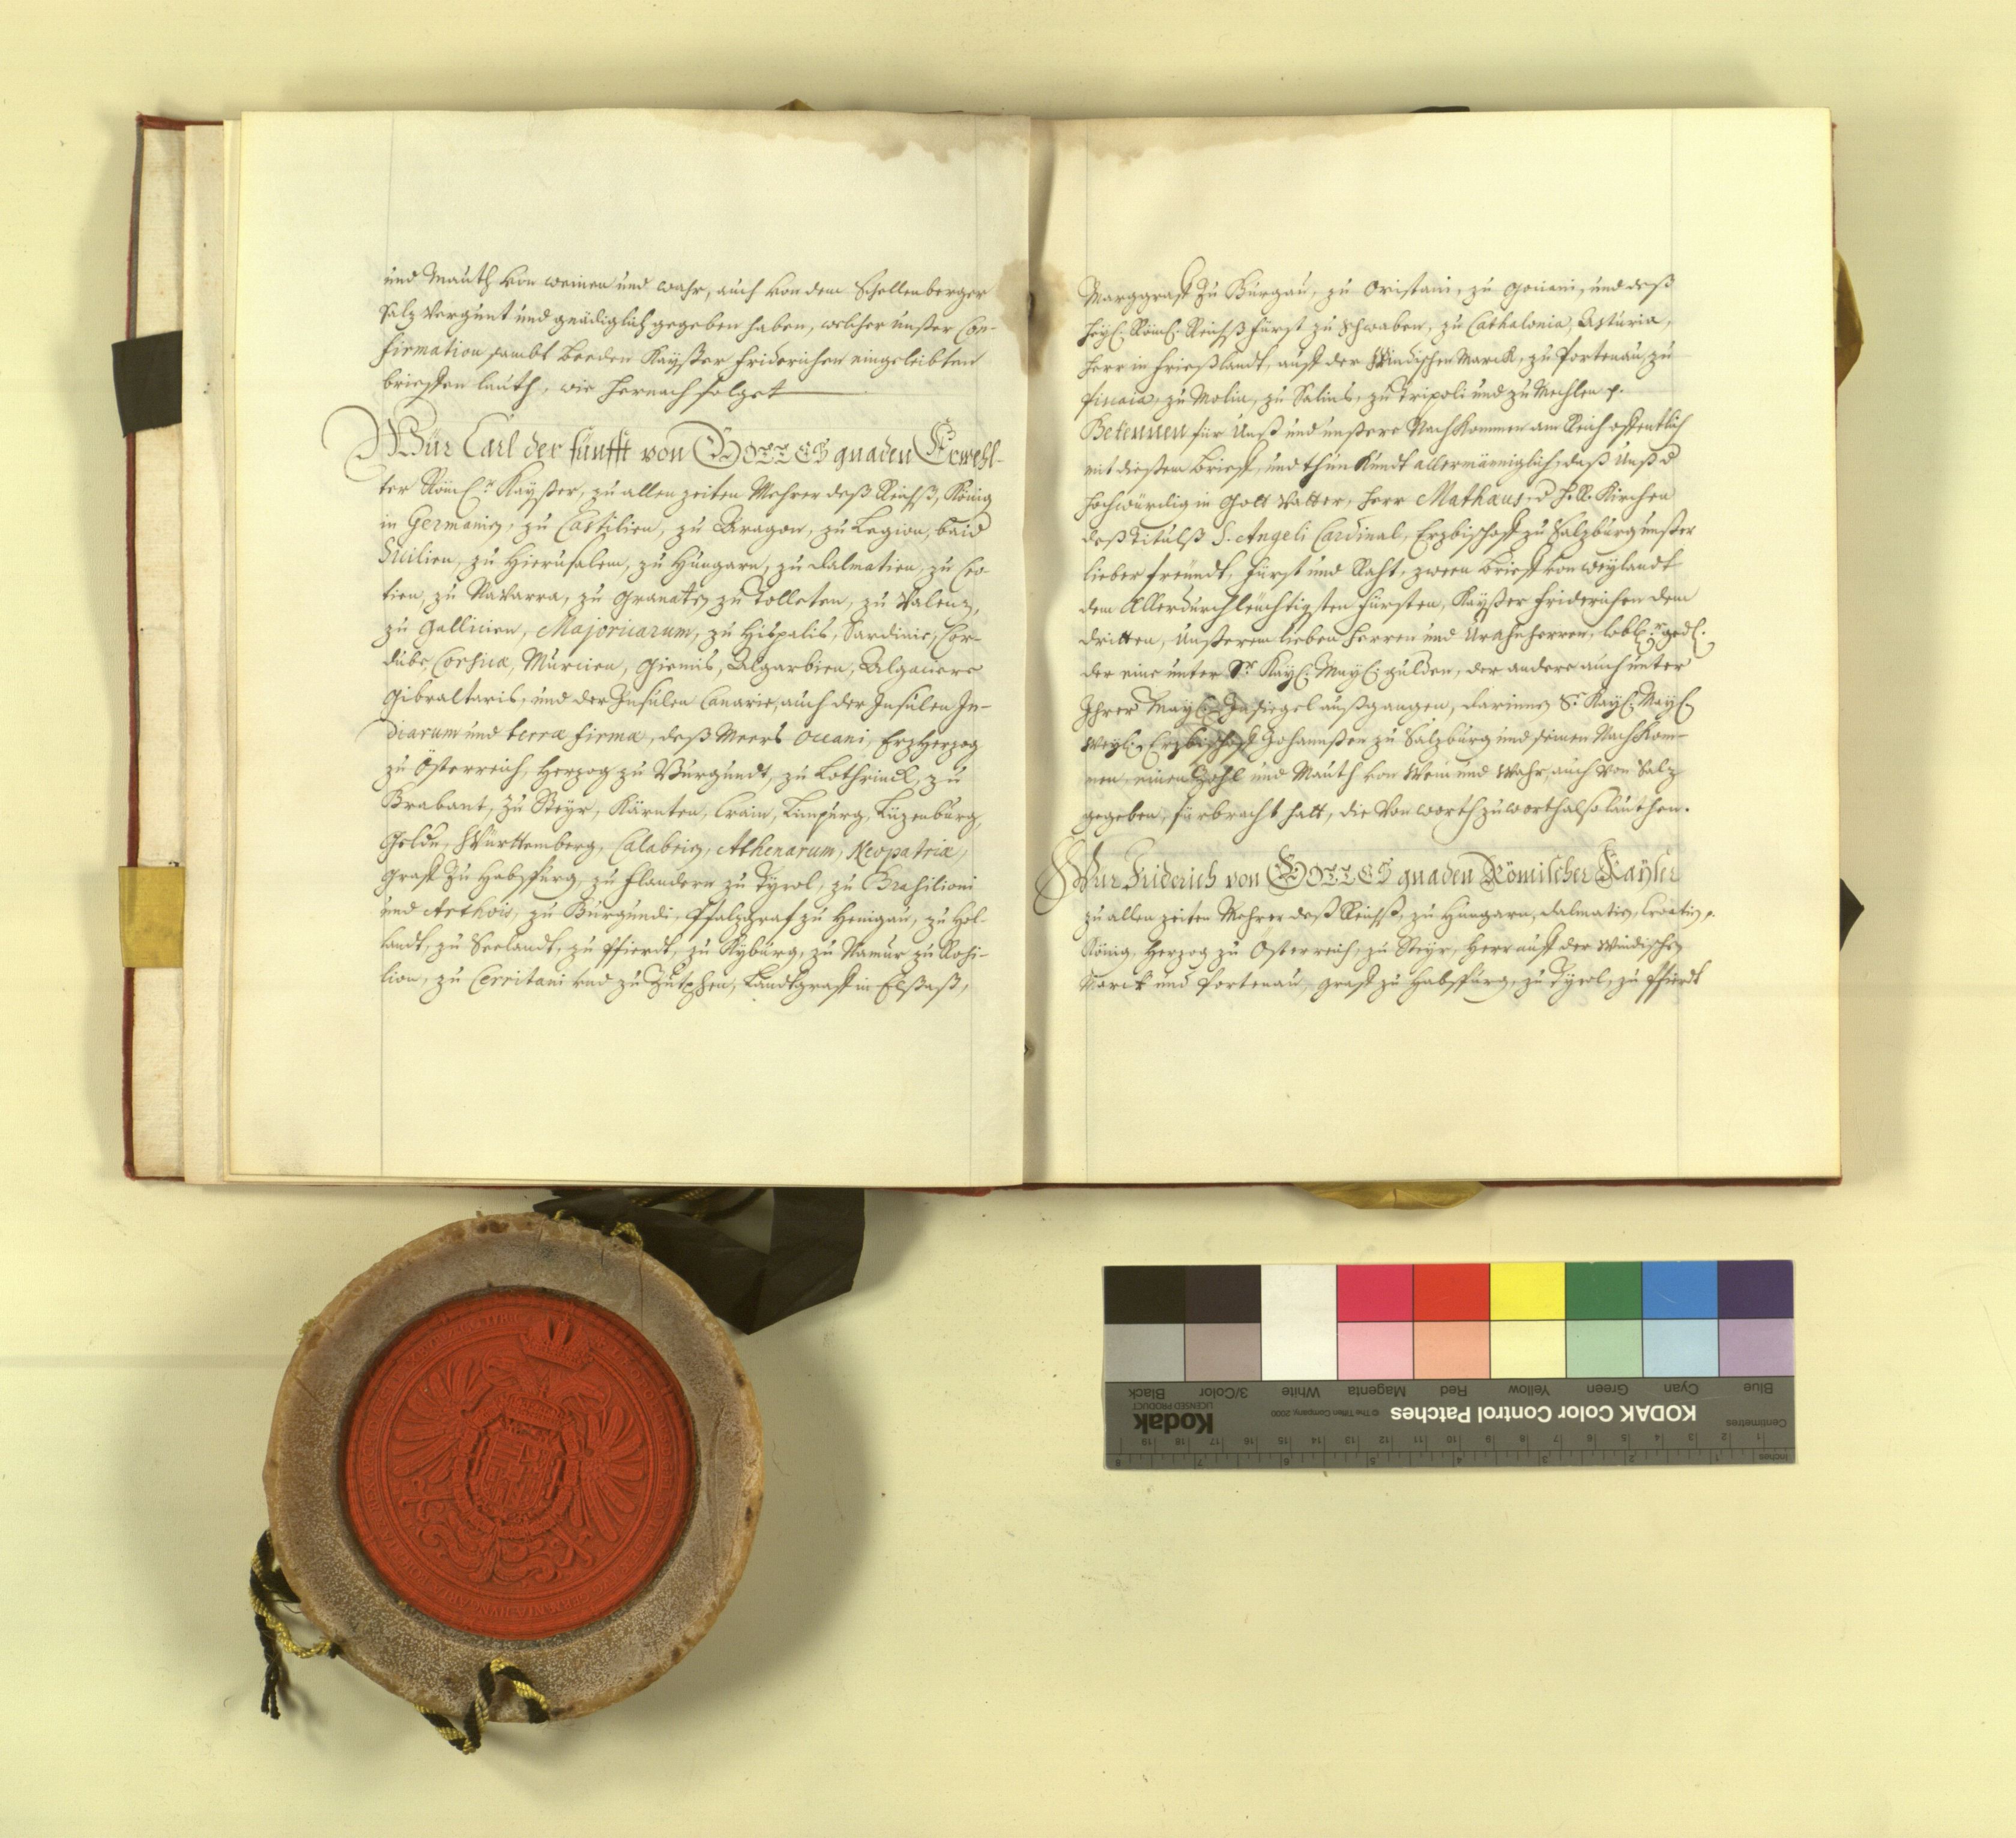 und Mauth von weinen und wahr, auch von dem Schellenberger
Salz vergunt und gnädiglich gegeben haben, welcher unßer Con-
firmation sambt beeden Kayßer Friderichen eingeleibten
brieffen lauth, wie hernach folget
Wür Carl der fünfft von GOTTES gnaden Erwehl-
ter Röm: Kayßer, zu allen zeiten Mehrer deß Reichß, König
in Germanien, zu Castilien, zu Aragon, zu Legion, baid
Sicilien, zu Hierusalem, zu Hungarn, zu Dalmatien, zu Cro-
tien, zu Navarra, zu Granaten zu Tolleten, zu Valenz,
zu Gallicien, Majoricarum, zu Hispalis, Sardinie, Cor-
dube, Corsicæ, Murcien, Giennis, Algarbien, Algaciere
Gibraltaris, und der Insulen Canarie, auch der Insulen In-
diarum und terræ firmæ, deß Meers Oceani, ErzHerzog
zu Österreich, Herzog zu Burgundt, zu Lothrinck, zu
Brabant, zu Steyr, Kärnten, Crain, Limpurg, Lüzenburg,
Geldn, Württemberg, Calabrien, Athenarum, Neopatriæ,
Graff zu Habspurg, zu Flandern zu Tyrol, zu Brasilioni
und Arthois, zu Burgundi, Pfalzgraf zu Henigau, zu Hol-
landt, zu Seelandt, zu Pfierdt, zu Kyburg, zu Namur zu Rosi-
lion, zu Cerritani und zu Zutphen, Landtgraff in Elßaß,
Marggraff zu Burgau, zu Oristani, zu Gociani, und deß
Heyl: Röm: Reichß Fürst zu Schwaben, zu Cathalonia, Asturia,
Herr in Frießlandt, auff der Windischen Marck, zu Portenau, zu
Biscaia, zu Molin, zu Salins, zu Tripoli und zu Mechlen p.
Bekennen für Unß und unßere Nachkommen am Reich offentlich
mit dießem brieff, und thun kundt allermänniglich, daß Unß d
Hochwürdig in Gott Vatter, Herr Mathæus, d H: R: Kirchen
deß Titulß S. Angeli Cardinal, Erzbischoff zu Salzburg unßer
lieber freundt, Fürst und Raht, zween brieff von weylandt
dem Allerdurchleüchtigsten Fürsten, Kayßer Friderichen dem
dritten, Unßerem lieben Herren und Uranherren, lobl: gedl:
der eine unter Sr. Kayl: Mayl: gulden, der andere auch unter
Ihrer Mayl: Insiegel außgangen, darinnen Sr. Kayl: Mayl:
weyl: Erzbischoff Johannßen zu Salzburg und seinen Nachkom-
men, einen Zohl und Mauth von Wein und Wahr, auch von Salz
gegeben, fürbracht hatt, die von worth zu worth also lauthen.
Wür Friderich von GOTTES gnaden Römischer Kayser
zu allen zeiten Mehrer deß Reichß, zu Hungarn, Dalmatien, Croatien p.
König, Herzog zu Österreich, zu Steyr, Herr auff der Windischen
Marck und Portenau, Graff zu Habspurg, zu Tyrol, zu Pfierdt
Blue Cyan Green Yellow Red Magenta White 3/Color Black
KODAK Color Control Patches © The Tiffen Company, 2000 Kodak
LICENSED PRODUCT
Centimetres
1 2 3 4 5 6 7 8 9 10 11 12 13 14 15 16 17 18 19
Inches 1 2 3 4 5 6 7 8